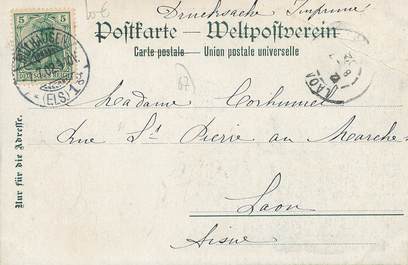 10 €
Drucksache Imprimé
Postkarte — Weltpostverein
Carte postale — Union postale universelle
5 5
(ELS)
LAON
67
Madame
Rue St Pierre au Marché
Laon
Aisne
Nur für die Adresse.